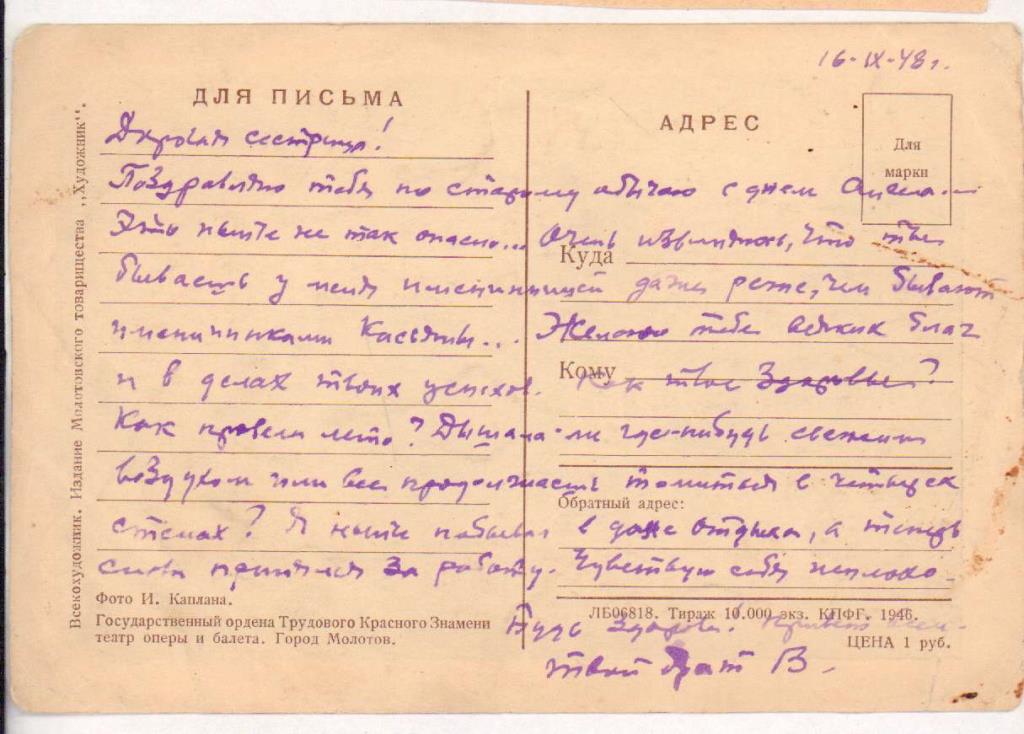 16-IX-48 г.
ДЛЯ ПИСЬМА
АДРЕС
Для
марки
Дорогая сестрица!
Поздравляю тебя по старому обычаю с днем Ангела...
Это нынче не так опасно... Очень извиняюсь, что ты
Куда
бываешь у меня именинницей даже реже, чем бывают
именинниками Касьяны... Желаю тебе всяких благ
и в делах твоих успехов. Как твое здоровье?
Кому
Как провели лето? Дышала-ли где-нибудь свежим
воздухом или все продолжаешь томиться в четырех
Обратный адрес:
стенах? Я нынче побывал в доме отдыха, а теперь
снова принялся за работу. Чувствую себя неплохо.
Будь здорова. Привет
твой брат В.
Фото И. Каплана.
Государственный ордена Трудового Красного Знамени
театр оперы и балета. Город Молотов.
ЛБ06818. Тираж 10.000 экз. КПФГ. 1946.
ЦЕНА 1 руб.
Всекохудожник. Издание Молотовского товарищества „Художник“.